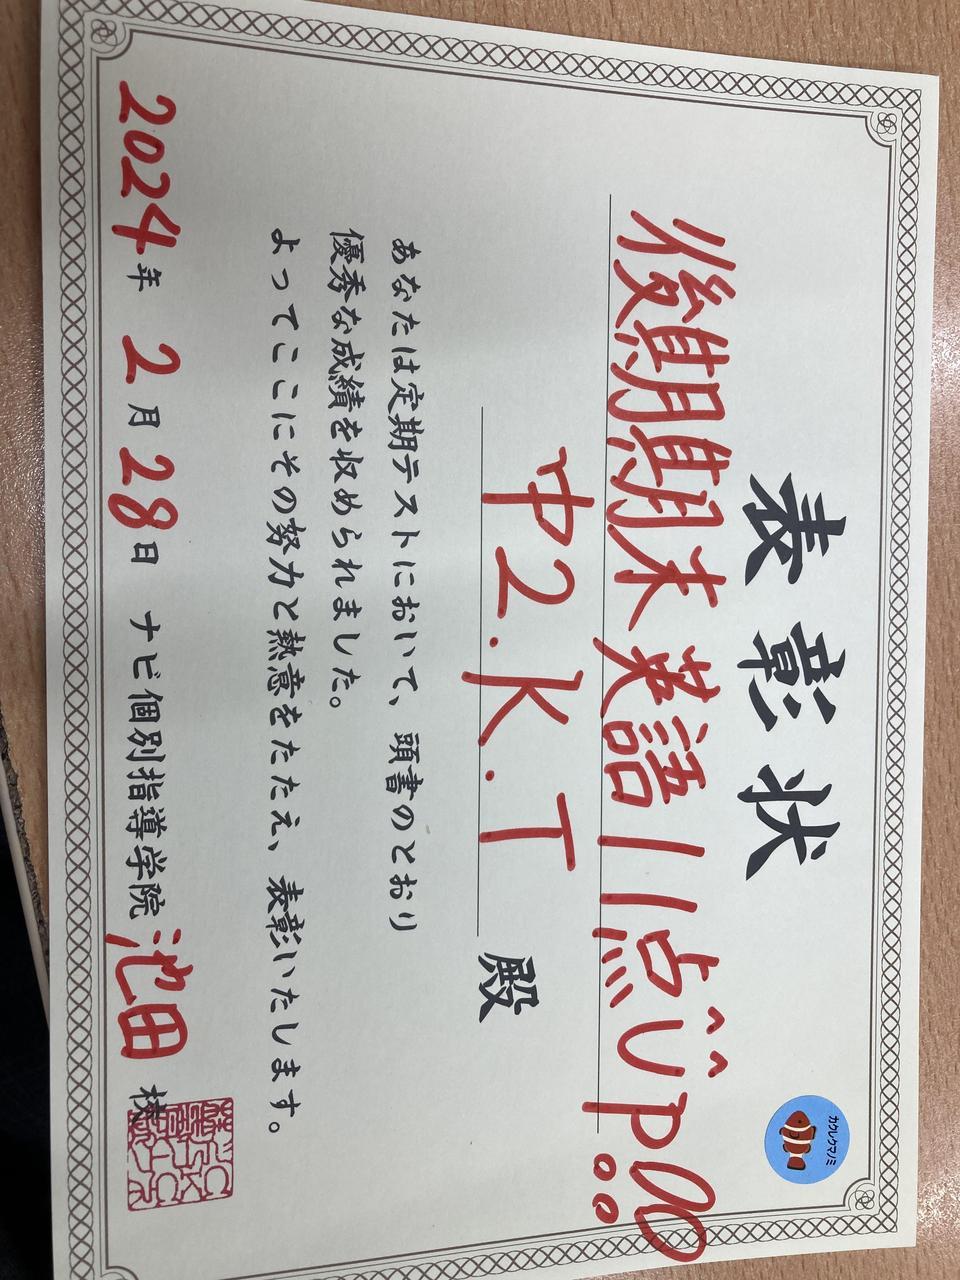 表彰状
カクレクマノミ
後期期末 英語 11点Up!!
中2.K.T 殿
あなたは定期テストにおいて、頭書のとおり
優秀な成績を収められました。
よってここにその努力と熱意をたたえ、表彰いたします。
2024年 2月28日 ナビ個別指導学院 池田 校